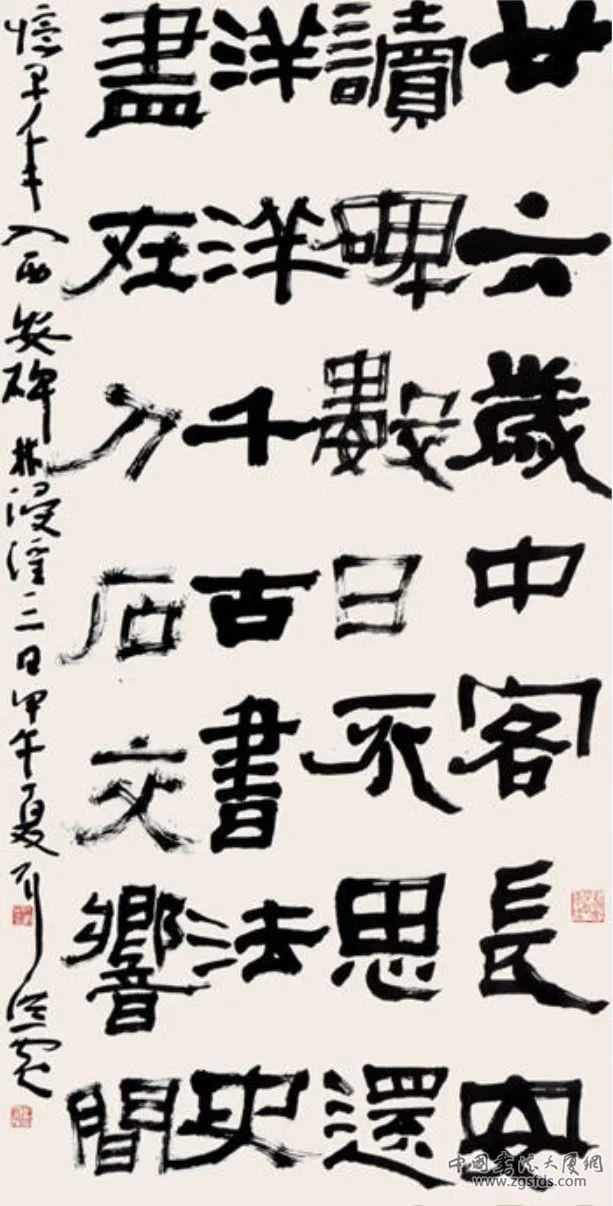 廿六歲中客長安
讀碑數日不思還
洋洋千古書法史
盡在刀石交響間
憶早年入西安碑林浸淫三日甲午夏
中國書法大厦網
www.zgsfds.com